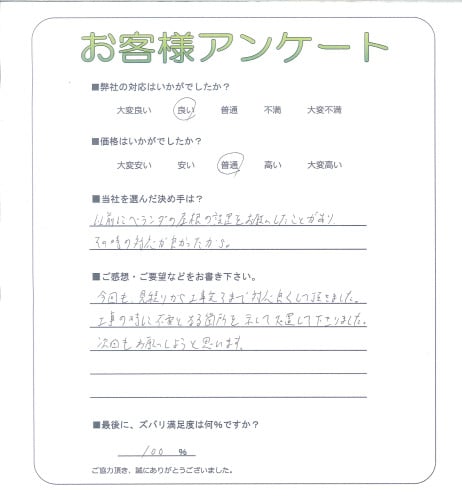 お客様アンケート
■弊社の対応はいかがでしたか？
大変良い 良い 普通 不満 大変不満
■価格はいかがでしたか？
大変安い 安い 普通 高い 大変高い
■当社を選んだ決め手は？
以前にベランダの屋根の設置をお願いしたことがあり
その時の対応が良かったから。
■ご感想・ご要望などをお書き下さい。
今回も、見積りから工事完了まで対応良くして頂きました。
工事の時に不要となる箇所を示して処置して下さいました。
次回もお願いしようと思います。
■最後に、ズバリ満足度は何％ですか？
100 ％
ご協力頂き、誠にありがとうございました。